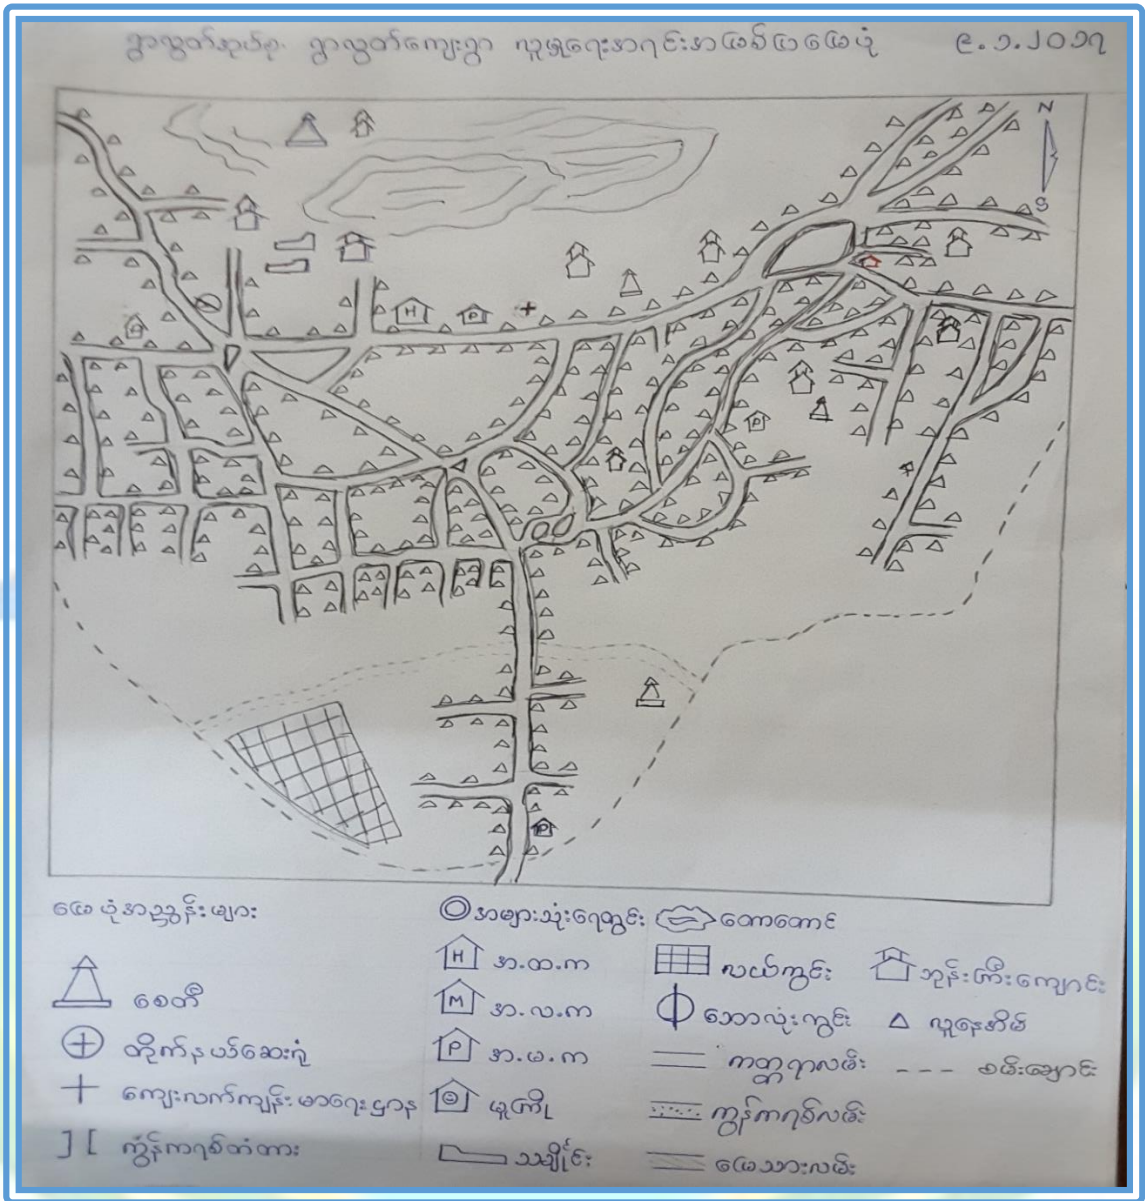 ရွာလွတ်အုပ်စု၊ ရွာလွတ်ကျေးရွာ လူမှုရေးအရင်းအမြစ်ပြမြေပုံ ၉.၁.၂၀၁၇
N
S
H
P
P
P
မြေပုံအညွှန်းများ
စေတီ
တိုက်နယ်ဆေးရုံ
ကျေးလက်ကျန်းမာရေးဌာန
ကွန်ကရစ်တံတား
အများသုံးရေတွင်း
H အ.ထ.က
M အ.လ.က
P အ.မ.က
မူကြို
သချိုင်း
တောတောင်
လယ်ကွင်း
ဘောလုံးကွင်း
ကတ္တရာလမ်း
ကွန်ကရစ်လမ်း
မြေသားလမ်း
ဘုန်းကြီးကျောင်း
လူနေအိမ်
စမ်းချောင်း